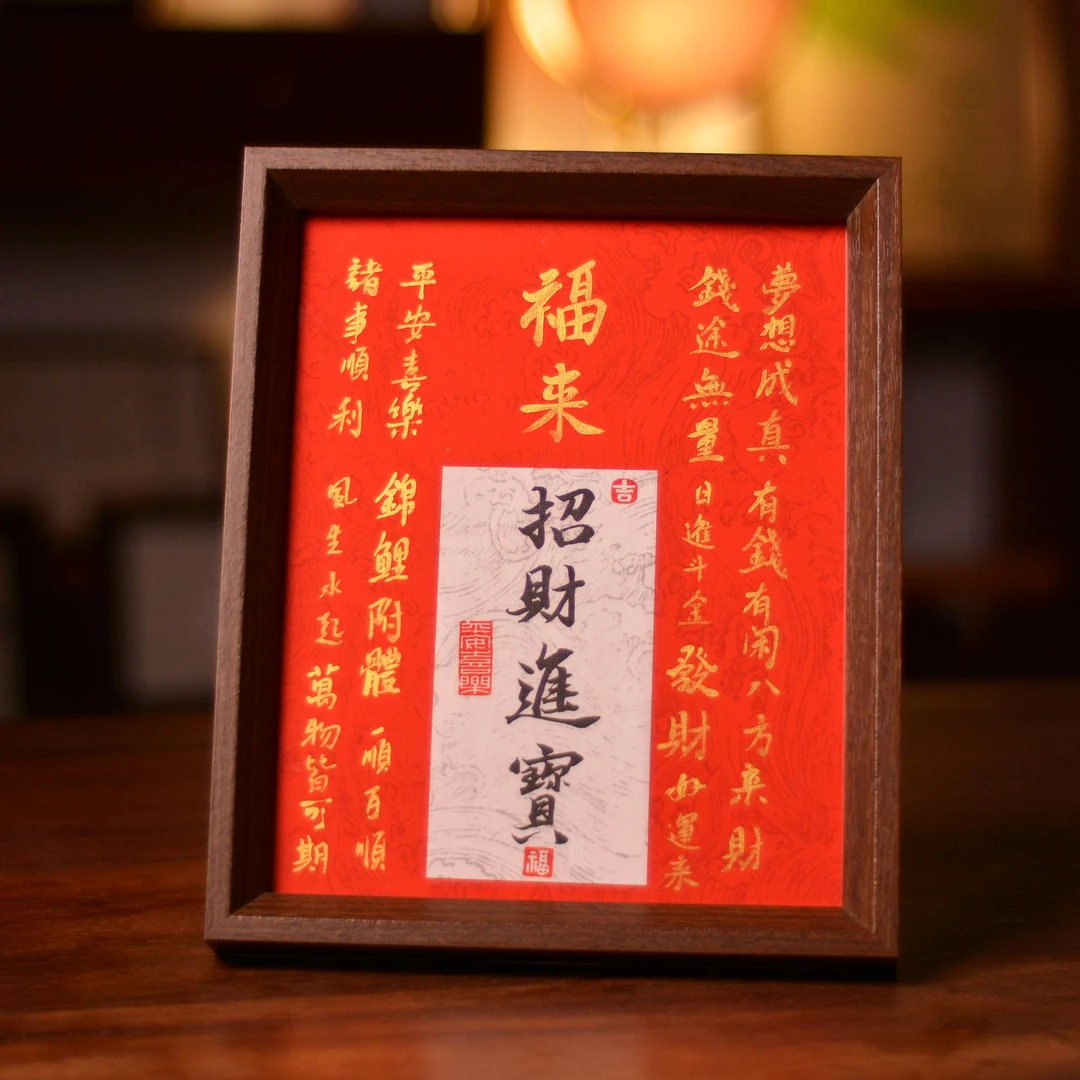 夢想成真 有錢有闲八方來財
錢途無量 日進斗金 發財好運来
福来
吉
招財進寶
福
平安喜樂
平安喜樂 錦鯉附體 一順百順
諸事順利 風生水起 萬物皆可期